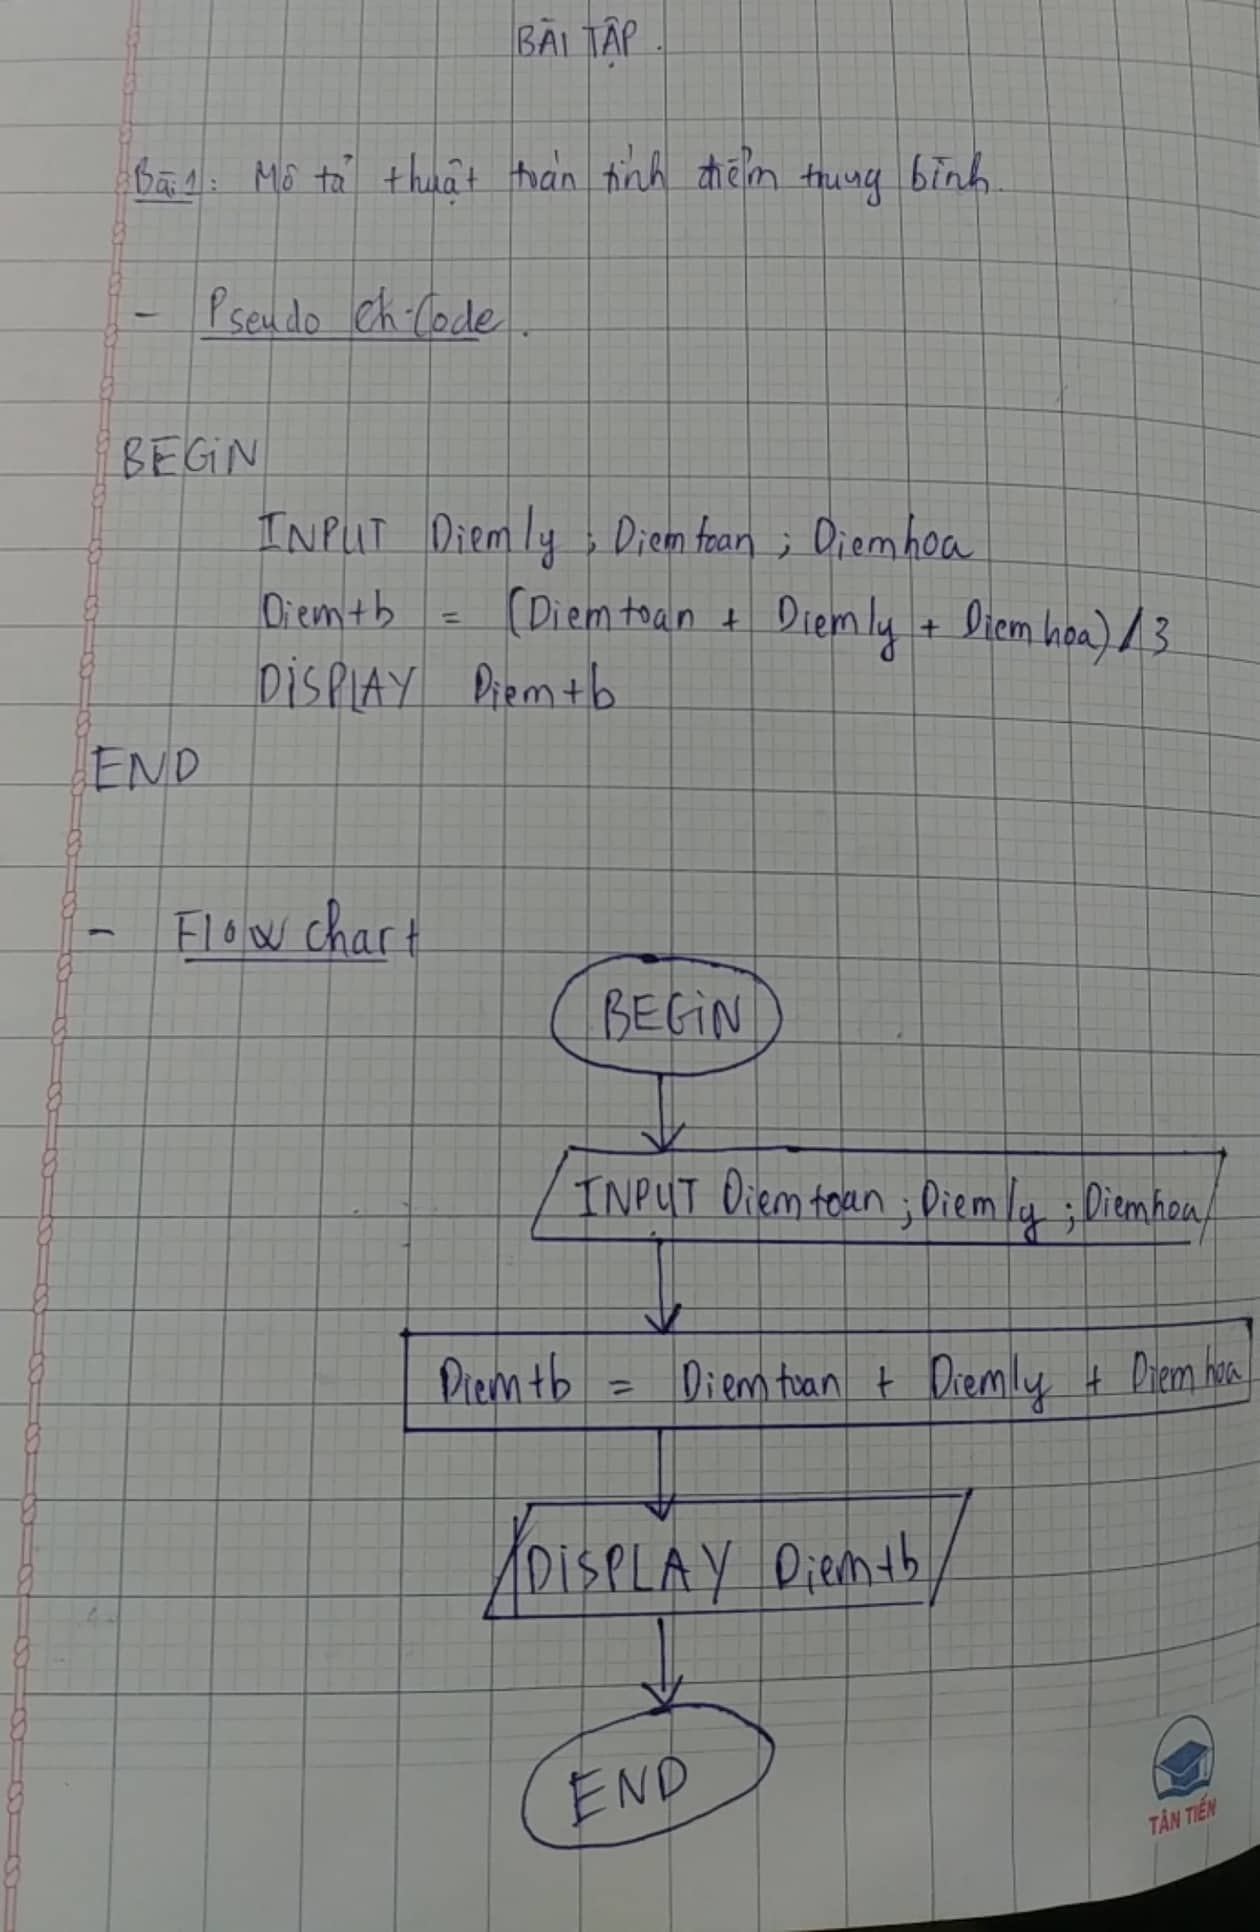 BÀI TẬP.
Bài 1: Mô tả thuật toán tính điểm trung bình.
- Pseudo Code.
BEGiN
INPUT Diemly ; Diemtoan ; Diemhoa
Diemtb = (Diemtoan + Diemly + Diemhoa) / 3
DiSPLAY Diemtb
END
- Flow chart
BEGiN
INPUT Diemtoan ; Diemly ; Diemhoa
Diemtb = Diemtoan + Diemly + Diemhoa
DiSPLAY Diemtb
END
TÂN TIẾN